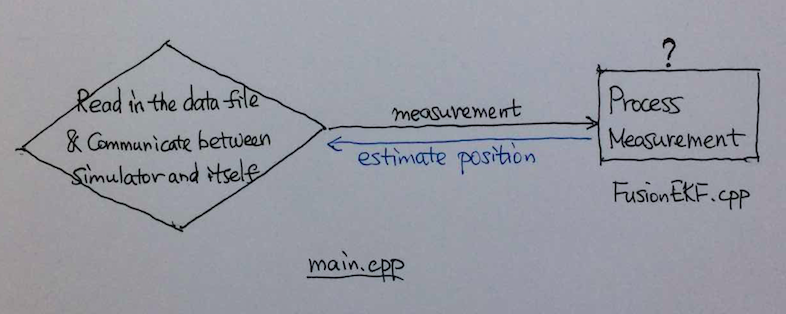 Read in the data file
& Communicate between
Simulator and itself
measurement
estimate position
?
Process
Measurement
FusionEKF.cpp
main.cpp